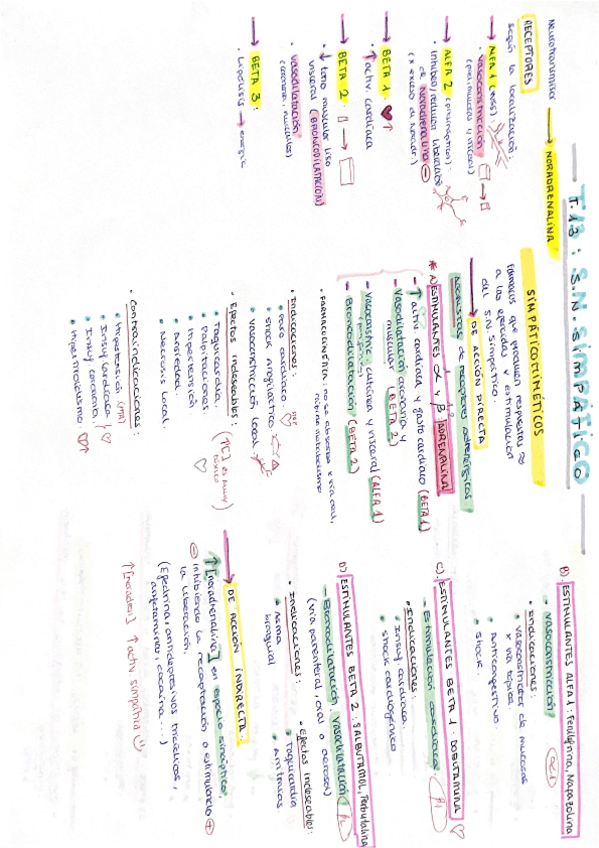 T.13: S.N. SIMPÁTICO
Neurotransmisor → NORADRENALINA
RECEPTORES
según la localización:
→ ALFA 1 (vasos):
• vasoconstricción
(piel, mucosa y visceral)
→ ALFA 2 (presináptico):
• Inhibe/reduce liberación
de Noradrenalina ⊖
(x exceso de Noradr)
→ BETA 1: ♥↑
• ↑ activ. cardíaca
→ BETA 2
• ↓ tono muscular liso
visceral (BRONCODILATACIÓN)
• vasodilatación
(coronaria, músculos)
→ BETA 3:
• Lipólisis → energía
SIMPÁTICOMIMÉTICOS
Fármacos que producen respuestas ≈
a las ejercidas x estimulación
del S.N. Simpático.
→ DE ACCIÓN DIRECTA
Agonistas de receptores adrenérgicos
* A) ESTIMULANTES α y β: ADRENALINA
- ↑ activ cardíaca y gasto cardíaco (BETA 1)
- Vasodilatación coronaria y
muscular (BETA 2)
- vasoconstric. cutánea y visceral (ALFA 1)
- Broncodilatación (BETA 2)
• FARMACOCINÉTICA: no se absorbe x vía oral,
metabolismo
• Indicaciones:
• Paro cardíaco
• Shock anafiláctico
• vasoconstricción local
• Efectos indeseables:
• Taquicardia
• Palpitaciones
• Hipertensión
• Ansiedad
• Necrosis local.
• Contraindicaciones:
• Hipertensión (HTA)
• Insuf. cardíaca
• Insuf coronaria
• Hipertiroidismo ♥↑
B) ESTIMULANTES ALFA 1: Fenilefrina, Nafazolina
- vasoconstricción
• Indicaciones:
• vasoconstrictor de mucosas
x vía tópica
• Anticongestivo
• Shock.
C) ESTIMULANTES BETA 1: DOBUTAMINA ♡
- Estimulación cardíaca. β1
• Indicaciones:
• Insuf. cardíaca.
• Shock cardiogénico
D) ESTIMULANTES BETA 2: SALBUTAMOL, Terbutalina
- Broncodilatación, vasodilatación
(vía parenteral, oral o aerosol)
• Indicaciones:
• Asma
bronquial
• Efectos indeseables:
• Taquicardia
• Arritmias
→ DE ACCIÓN INDIRECTA:
↑ [noradrenalina] en espacio sináptico,
⊖ inhibiendo la recaptación o estimulando ⊕
la liberación.
(Efedrina, antidepresivos tricíclicos,
anfetaminas, cocaína...)
↑ activ simpática